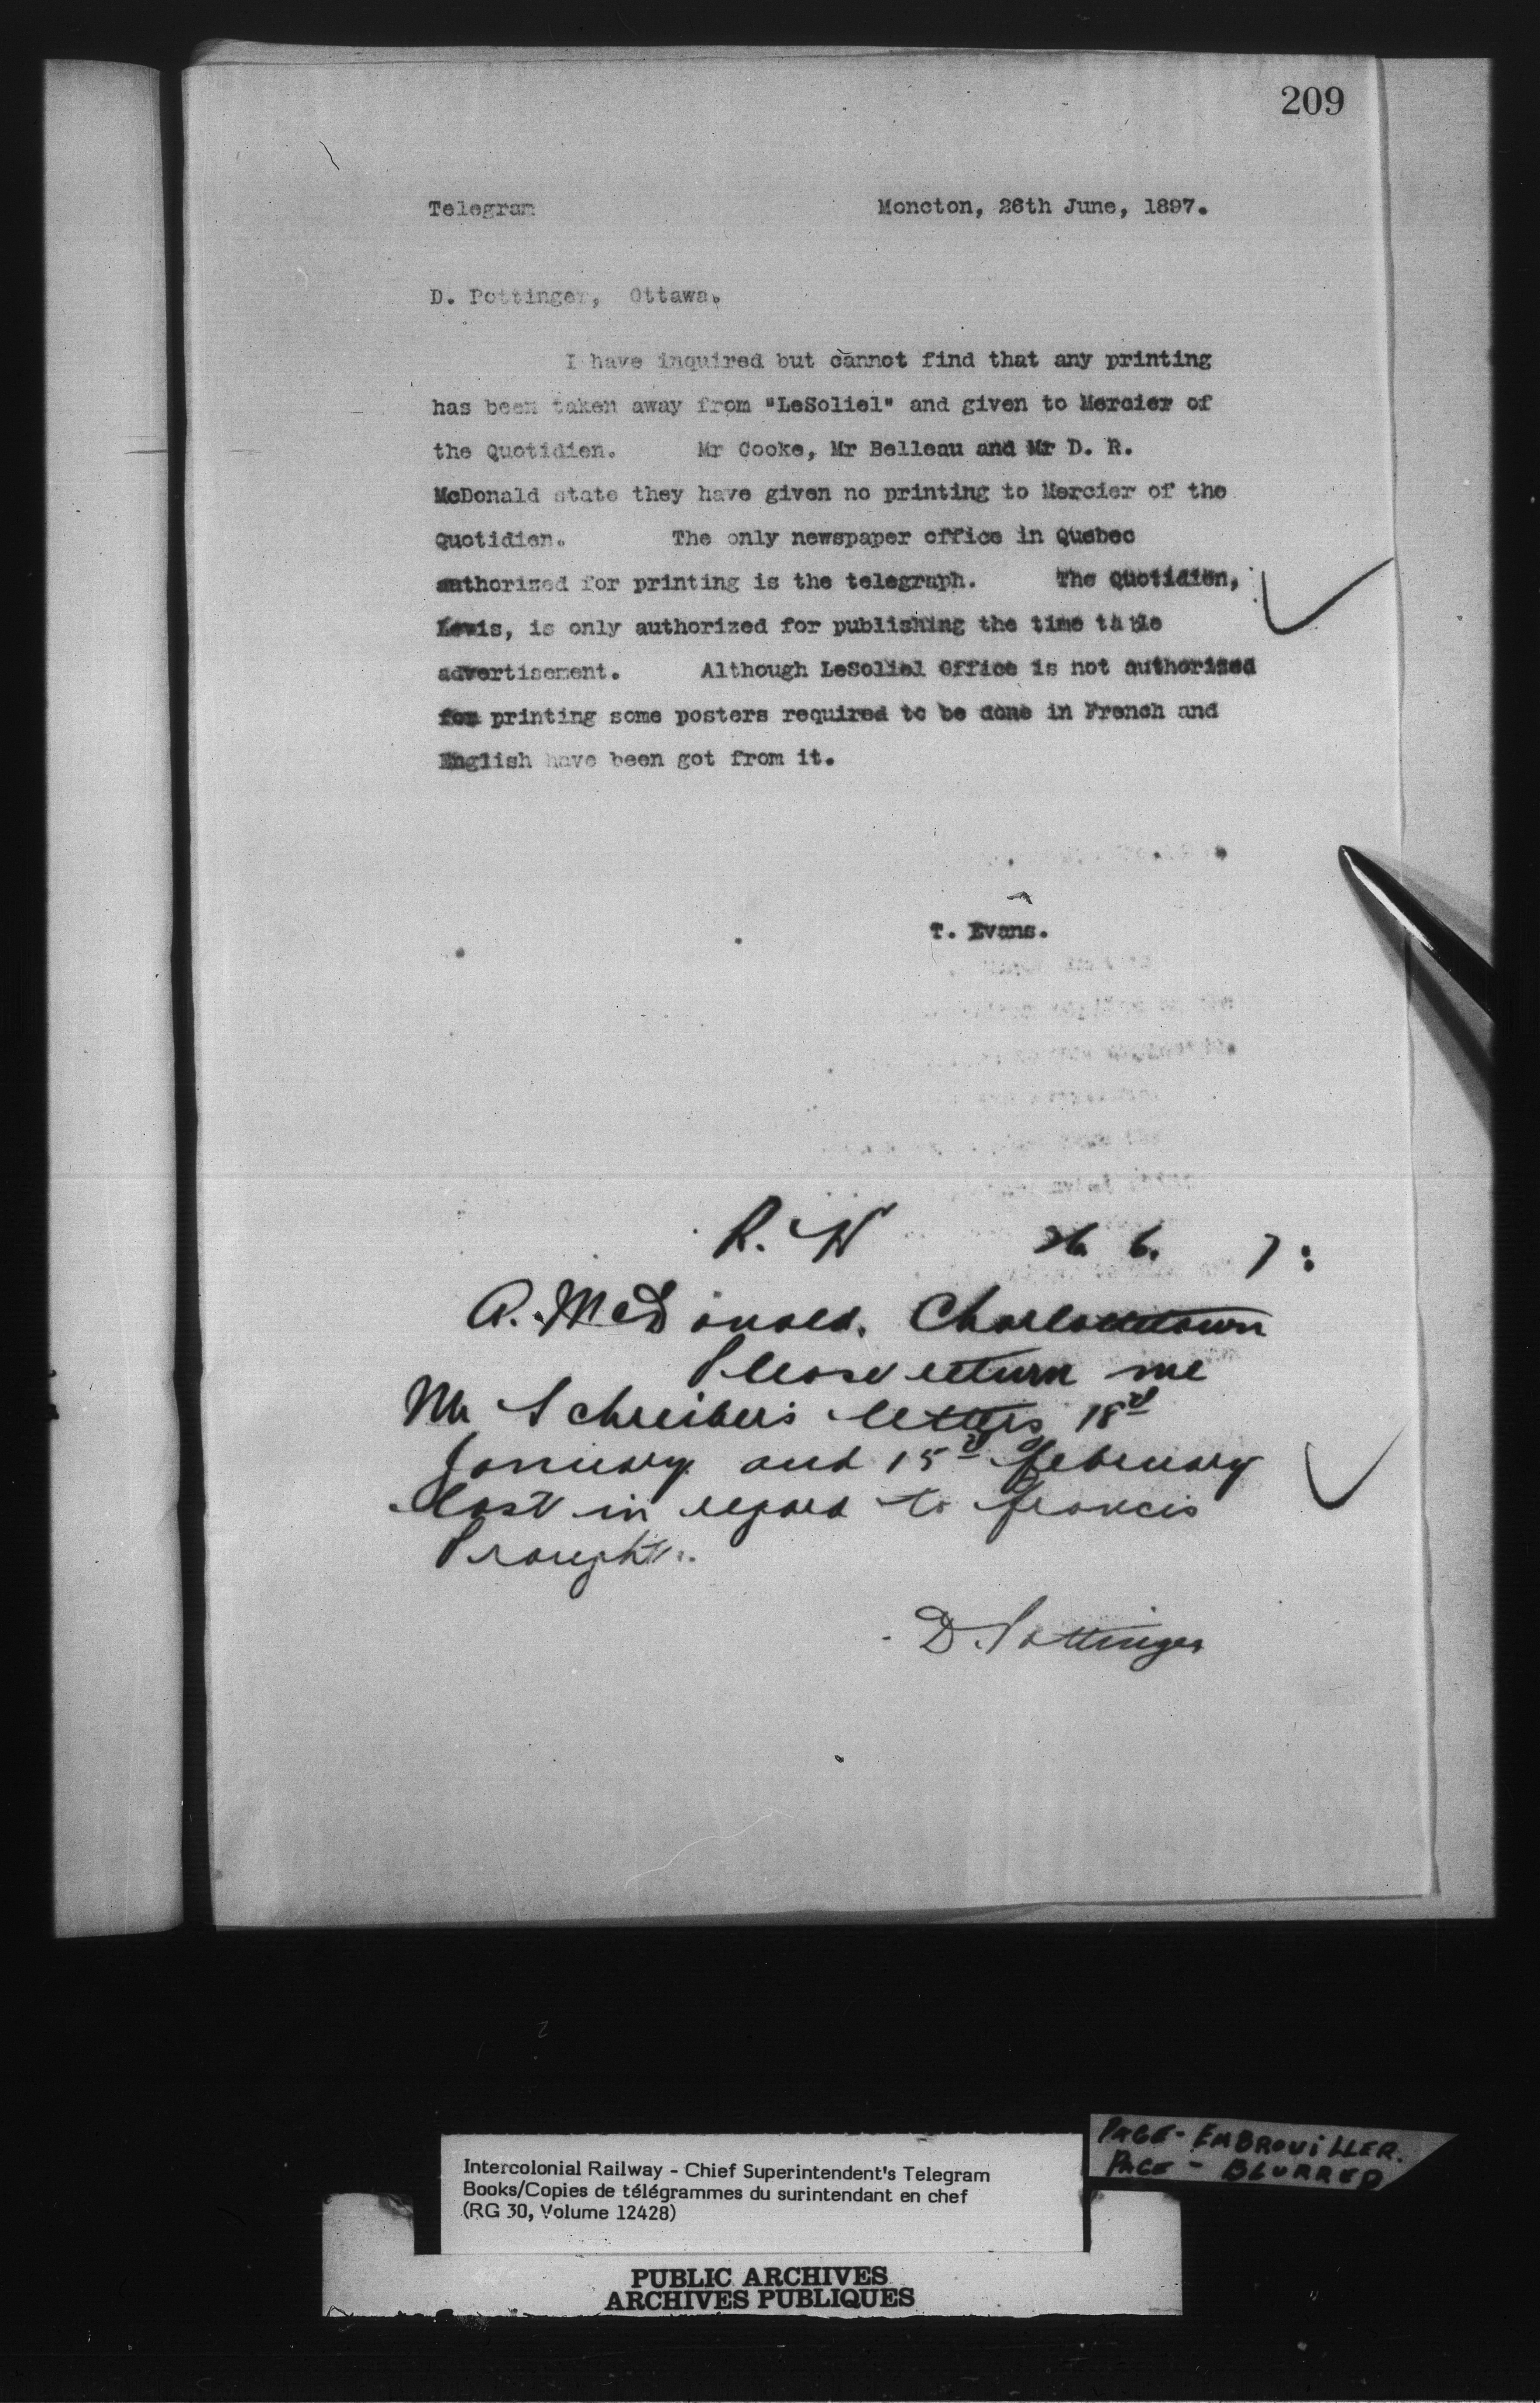 209
Telegram Moncton, 26th June, 1897.
D. Pottinger, Ottawa.
I have inquired but cannot find that any printing
has been taken away from "LeSoliel" and given to Mercier of
the Quotidien. Mr Cooke, Mr Belleau and Mr D. R.
McDonald state they have given no printing to Mercier of the
Quotidien. The only newspaper office in Quebec
authorized for printing is the telegraph. The Quotidien,
Levis, is only authorized for publishing the time table
advertisement. Although LeSoliel Office is not authorized
for printing some posters required to be done in French and
English have been got from it.
T. Evans.
R. W 26. 6. 7:
A. McDonald. Charlottetown
Please return me
Mr Schreiber's letters 18th
January and 15th February
last in regard to Francis
Prought.
D. Pottinger
PAGE - EMBROUILLER.
PAGE - BLURRED
Intercolonial Railway - Chief Superintendent's Telegram
Books/Copies de télégrammes du surintendant en chef
(RG 30, Volume 12428)
PUBLIC ARCHIVES
ARCHIVES PUBLIQUES